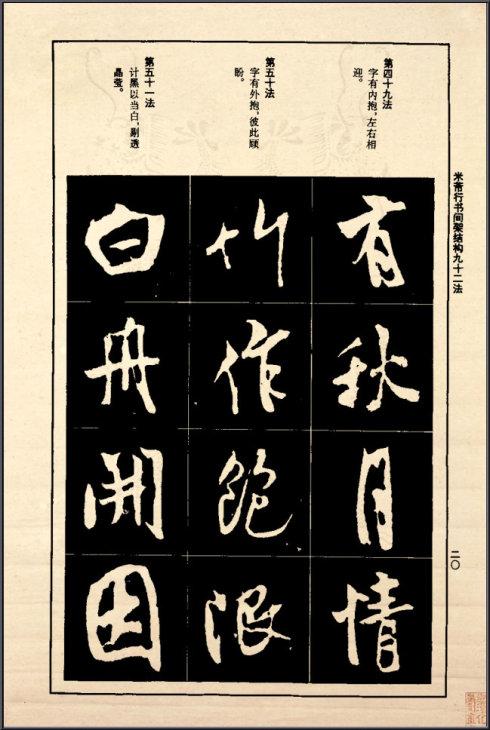 米芾行书间架结构九十二法
第四十九法
字有内抱,左右相
迎。
有秋月情
第五十法
字有外抱,彼此顾
盼。
竹作饱
第五十一法
计黑以当白,剔透
晶莹。
白舟開因
二〇